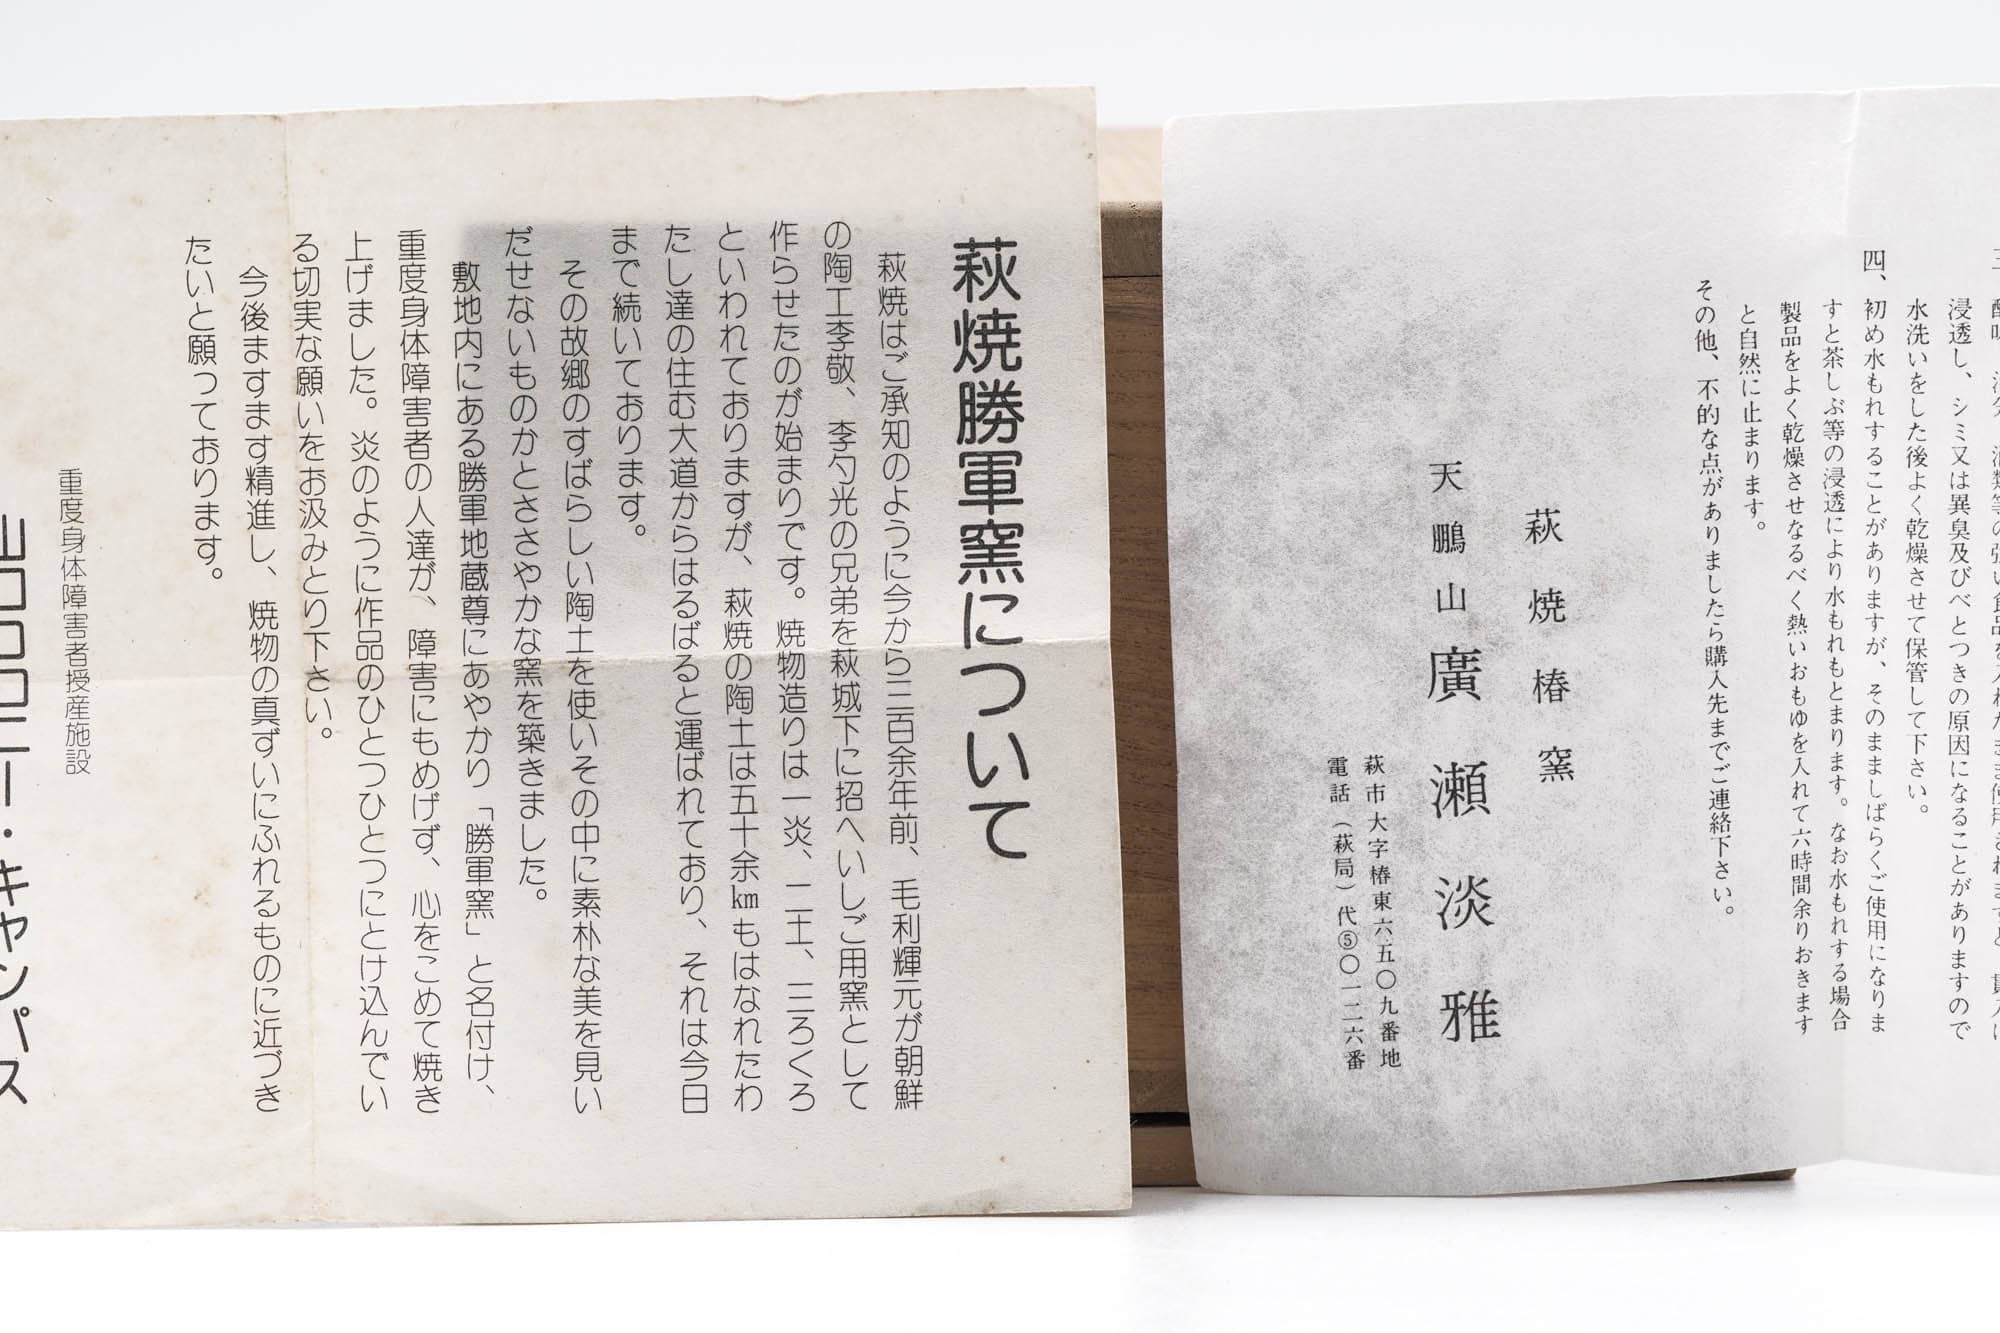 萩焼勝軍窯について
萩焼はご承知のように今から三百余年前、毛利輝元が朝鮮
の陶工李敬、李勺光の兄弟を萩城下に招へいしご用窯として
作らせたのが始まりです。焼物造りは一炎、二土、三ろくろ
といわれておりますが、萩焼の陶土は五十余kmもはなれたわ
たし達の住む大道からはるばると運ばれており、それは今日
まで続いております。
その故郷のすばらしい陶土を使いその中に素朴な美を見い
だせないものかとささやかな窯を築きました。
敷地内にある勝軍地蔵尊にあやかり「勝軍窯」と名付け、
重度身体障害者の人達が、障害にもめげず、心をこめて焼き
上げました。炎のように作品のひとつひとつにとけ込んでい
る切実な願いをお汲みとり下さい。
今後ますます精進し、焼物の真ずいにふれるものに近づき
たいと願っております。
重度身体障害者授産施設
コロニー・キャンパス
浸透し、シミ又は異臭及びべとつきの原因になることがありますので
水洗いをした後よく乾燥させて保管して下さい。
四、初め水もれすることがありますが、そのまましばらくご使用になりま
すと茶しぶ等の浸透により水もれもとまります。なお水もれする場合
製品をよく乾燥させなるべく熱いおもゆを入れて六時間余りおきます
と自然に止まります。
その他、不的な点がありましたら購入先までご連絡下さい。
萩焼椿窯
天鵬山廣瀬淡雅
萩市大字椿東六五〇九番地
電話(萩局)代⑤〇一二六番